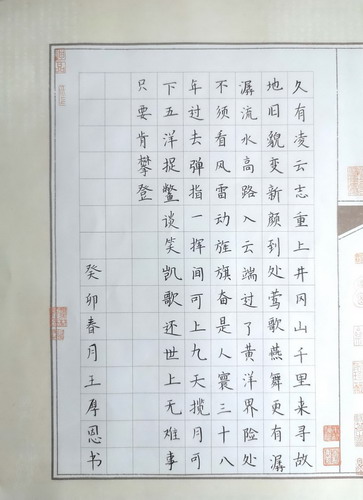 久有凌云志重上井冈山千里来寻故
地旧貌变新颜到处莺歌燕舞更有潺
潺流水高路入云端过了黄洋界险处
不须看风雷动旌旗奋是人寰三十八
年过去弹指一挥间可上九天揽月可
下五洋捉鳖谈笑凯歌还世上无难事
只要肯攀登
癸卯春月王厚恩书